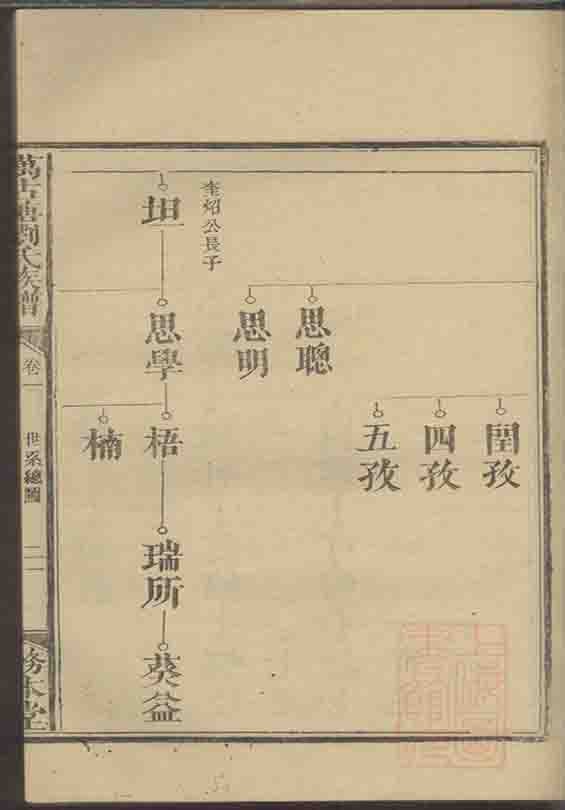 閏孜
四孜
五孜
思聰
思明
奎炤公長子
坦
思學
梧
瑞所
葵益
楠
萬古塘劉氏族譜
卷一
世系總圖
務本堂